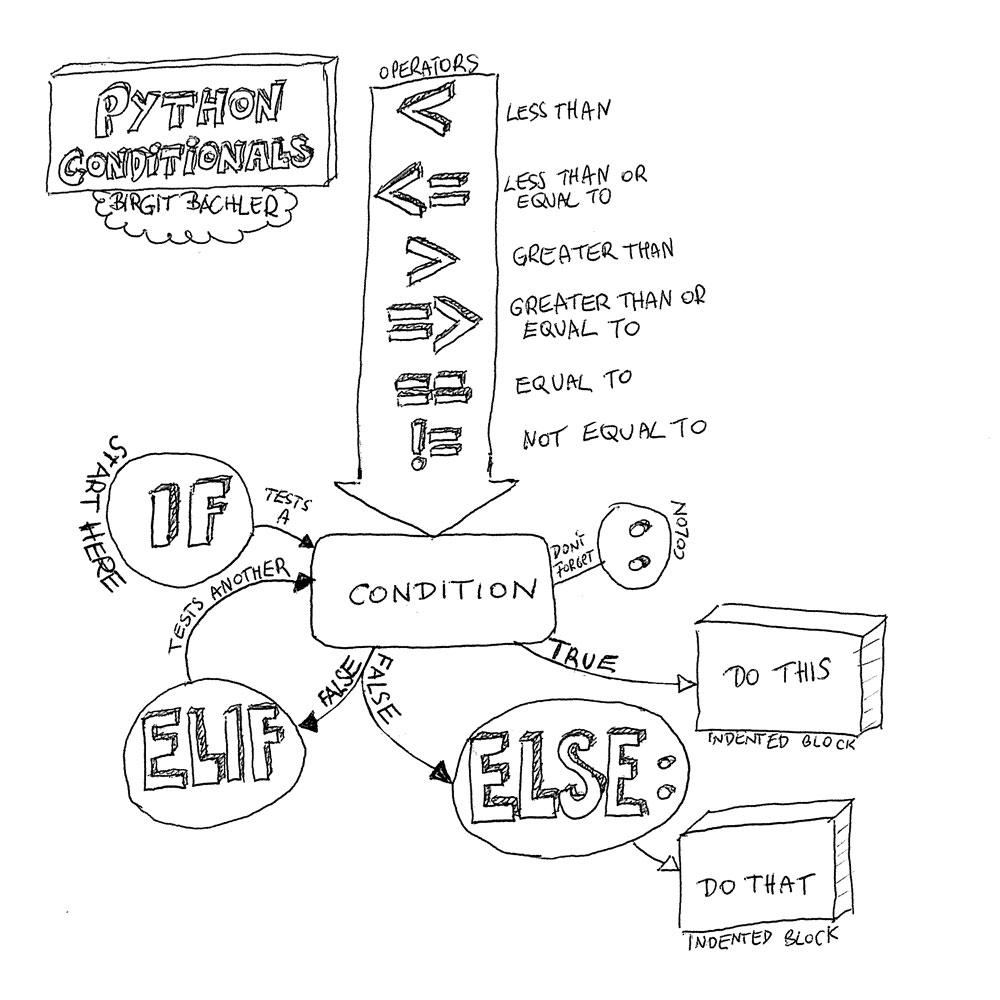 PYTHON
CONDITIONALS
BIRGIT BACHLER
OPERATORS
< LESS THAN
<= LESS THAN OR
EQUAL TO
> GREATER THAN
=> GREATER THAN OR
EQUAL TO
== EQUAL TO
!= NOT EQUAL TO
START HERE
IF
TESTS
A
CONDITION
DON'T
FORGET
:
COLON
TESTS ANOTHER
ELIF
FALSE
FALSE
TRUE
DO THIS
INDENTED BLOCK
ELSE:
DO THAT
INDENTED BLOCK